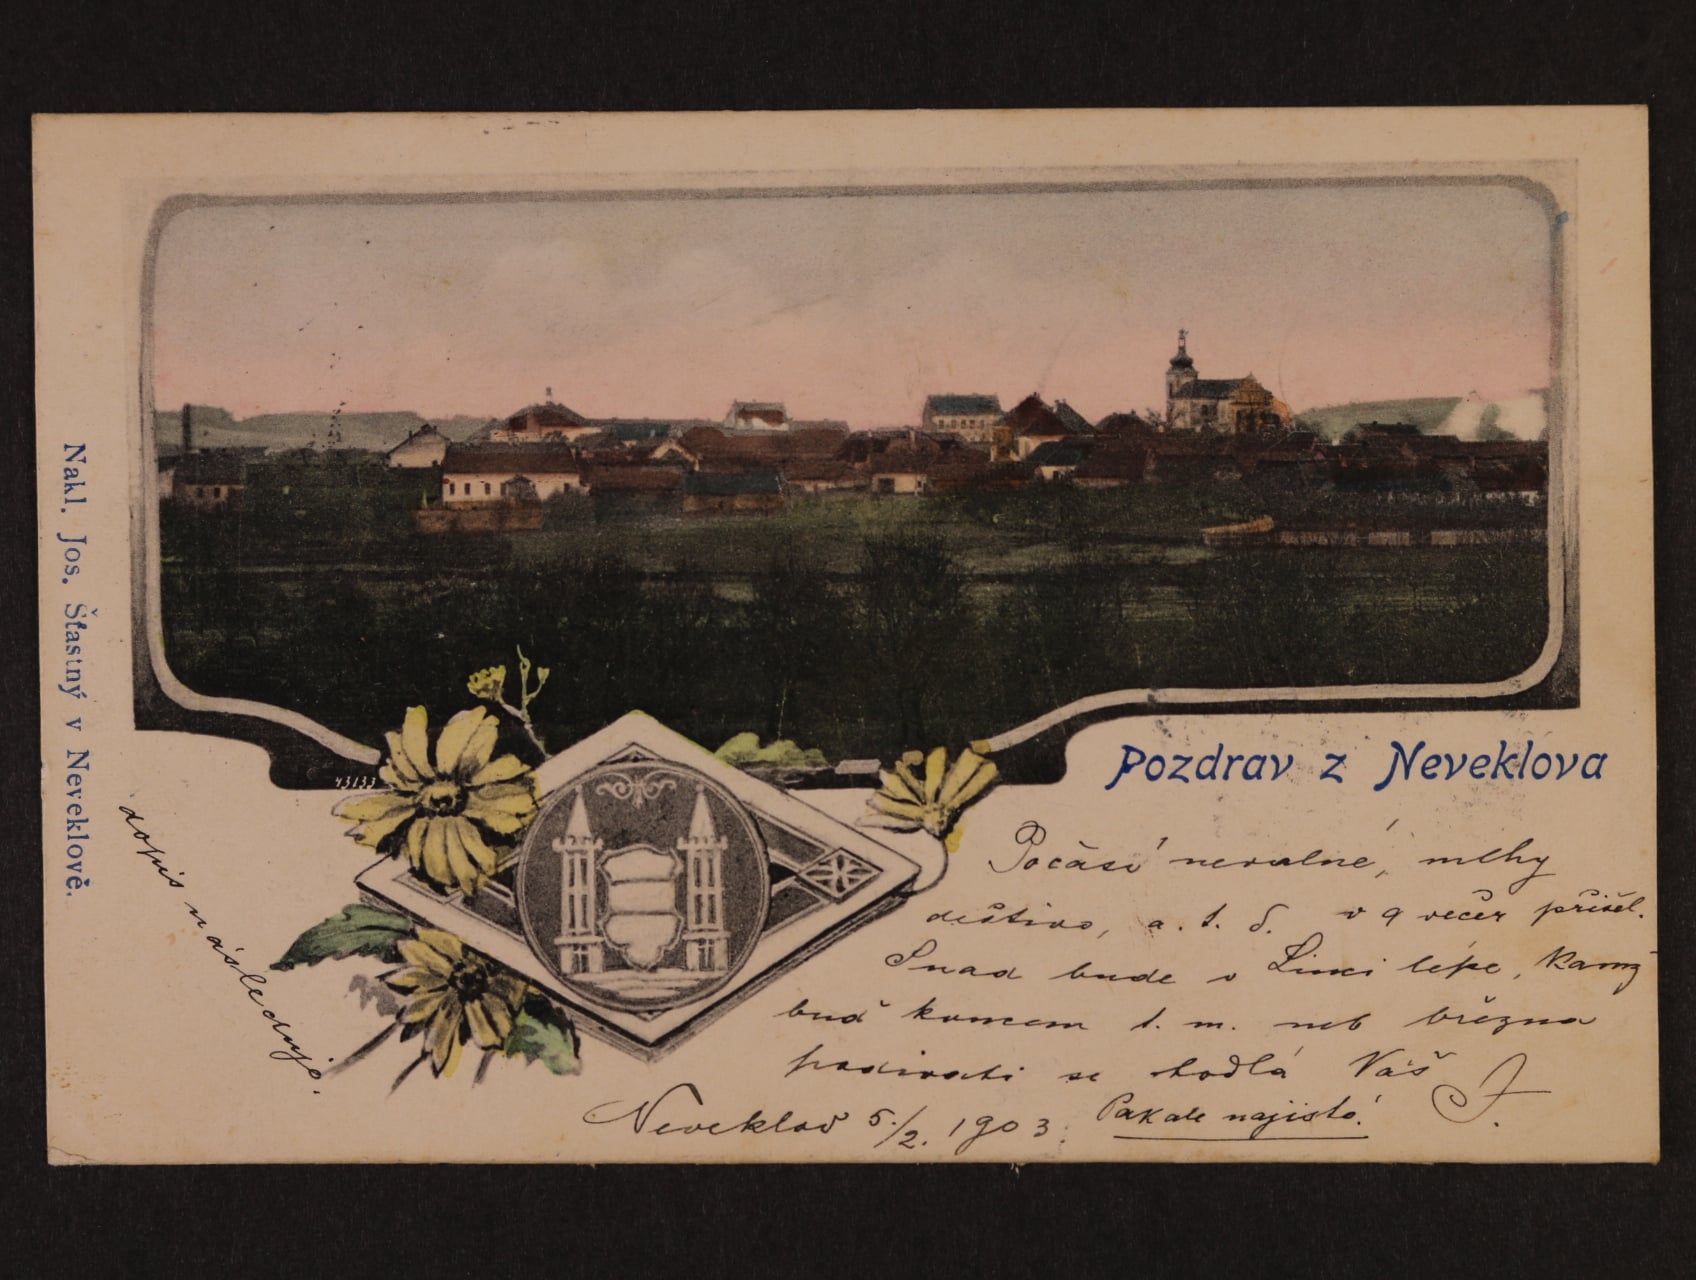 Nakl. Jos. Šťastný v Neveklově.
43133
Pozdrav z Neveklova
Počasí nevalné, mlhy
deštivo, a. t. d. v 9 večer přišel.
Snad bude v Linci lépe, kamž
buď koncem t. m. neb března
podívati se hodlá Váš J.
Neveklov 5./2. 1903. Pak ale najisto!
dopis následuje.